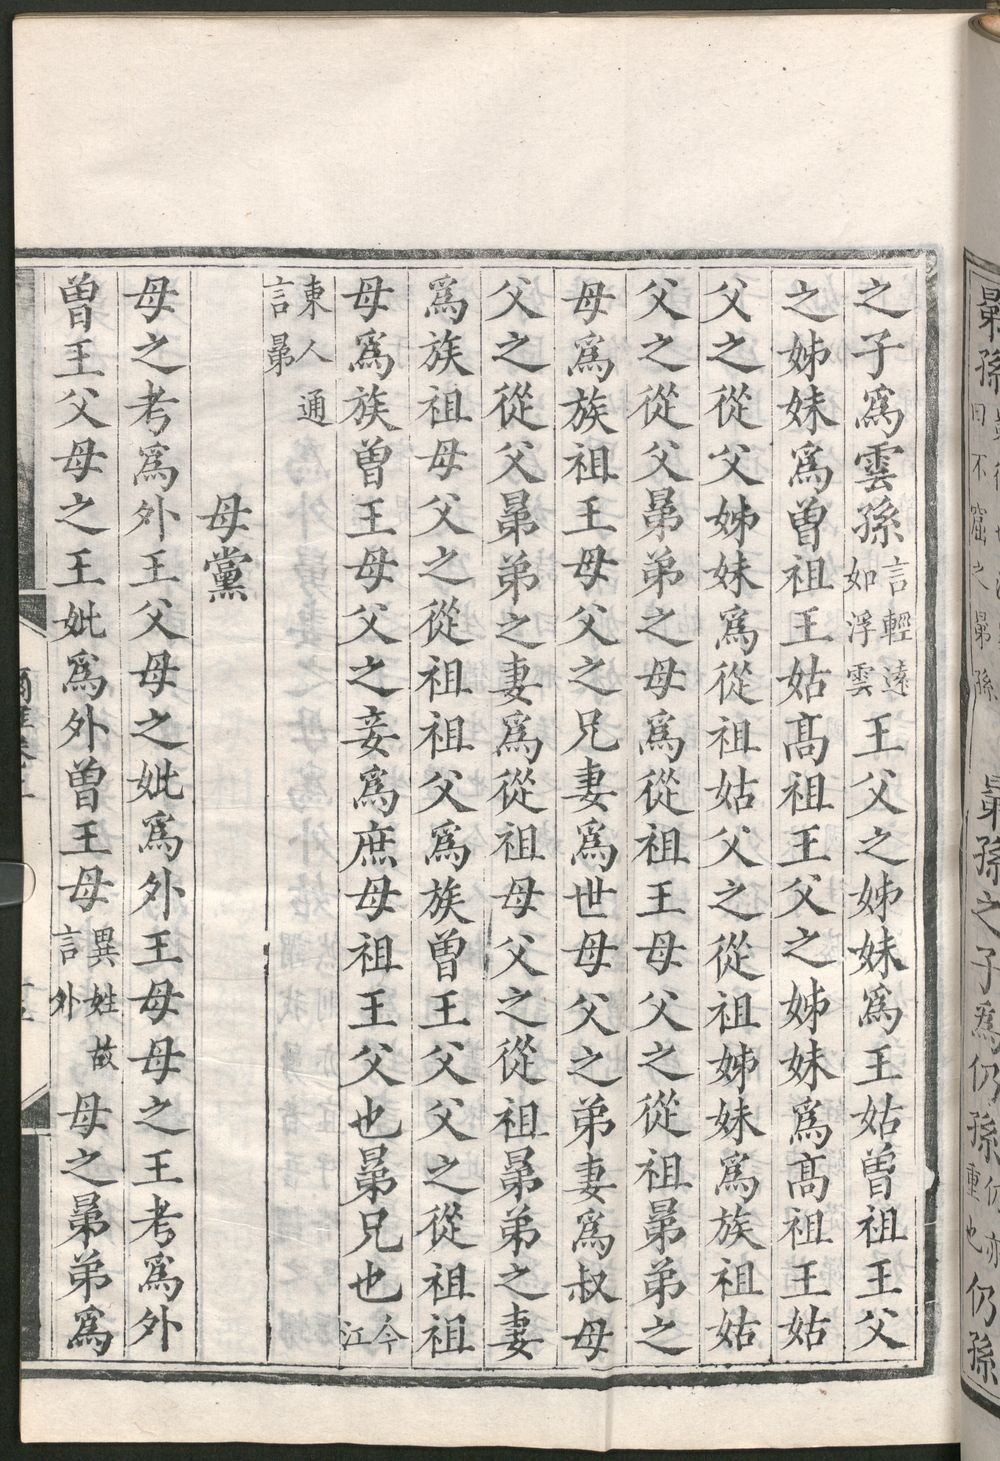 之子爲雲孫言輕遠如浮雲王父之姊妹爲王姑曽祖王父
之姊妹爲曽祖王姑髙祖王父之姊妹爲髙祖王姑
父之從父姊妹爲從祖姑父之從祖姊妹爲族祖姑
父之從父晜弟之母爲從祖王母父之從祖晜弟之
母爲族祖王母父之兄妻爲世母父之弟妻爲叔母
父之從父晜弟之妻爲從祖母父之從祖晜弟之妻
爲族祖母父之從祖祖父爲族曽王父父之從祖祖
母爲族曽王母父之妾爲庶母祖王父也晜兄也今江
東人通言晜
母黨
母之考爲外王父母之妣爲外王母母之王考爲外
曽王父母之王妣爲外曽王母異姓故言外母之晜弟爲